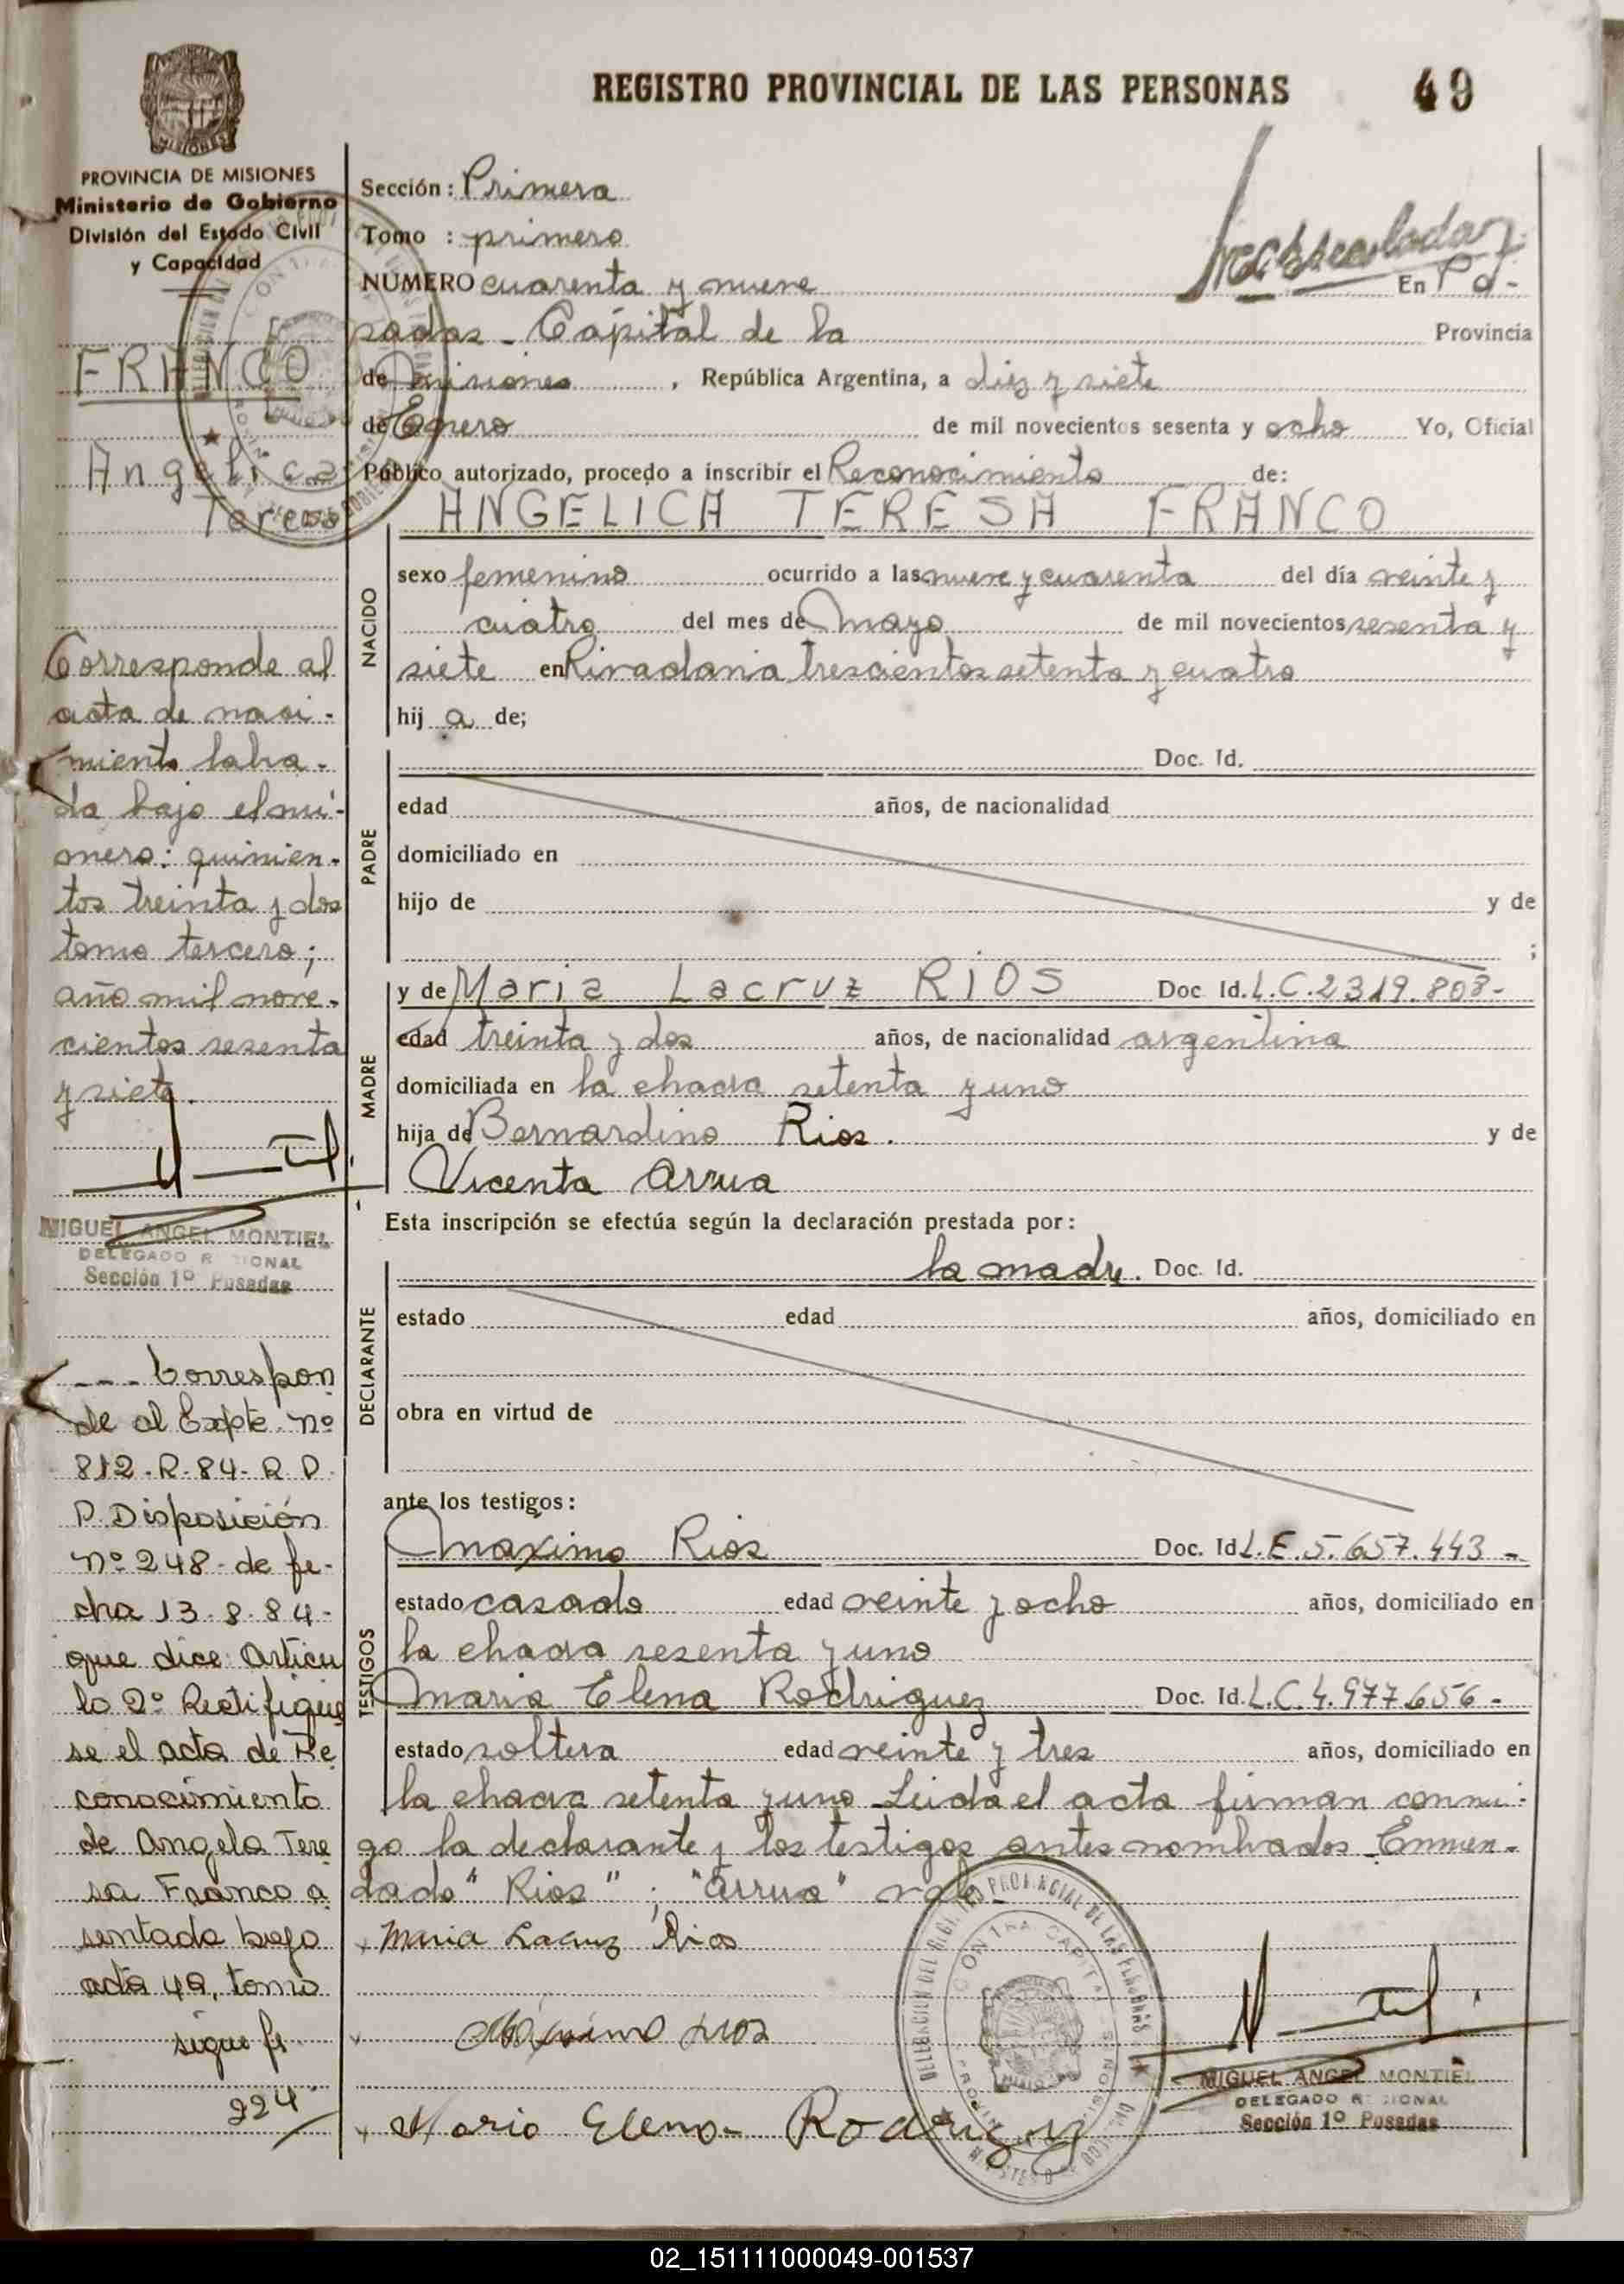 REGISTRO PROVINCIAL DE LAS PERSONAS 49
MISIONES
PROVINCIA DE MISIONES
Ministerio de Gobierno
División del Estado Civil
y Capacidad
FRANCO
Angelica
Teresa
Corresponde al
acta de naci-
miento labra-
da bajo el nú-
mero: quinien-
tos treinta y dos
tomo tercero;
año mil nove-
cientos sesenta
y siete.
MIGUEL ANGEL MONTIEL
DELEGADO REGIONAL
Sección 1º Posadas
--- Correspon
de al Expte. nº
812-R-84-R.P.
P. Disposición
nº 248- de fe-
cha 13-8-84-
que dice: Artícu
lo 2º Rectifíque
se el acta de Re
conocimiento
de Angela Tere
sa Franco a
sentada bajo
acta 49, tomo
sigue fs.
224
Sección: Primera
Tomo : primero
NUMERO cuarenta y nueve En Po-
sadas - Capital de la Provincia
de Misiones , República Argentina, a diez y siete
de Enero de mil novecientos sesenta y ocho Yo, Oficial
Público autorizado, procedo a inscribir el Reconocimiento de:
ANGELICA TERESA FRANCO
NACIDO
sexo femenino ocurrido a las nueve y cuarenta del día veinte y
cuatro del mes de Mayo de mil novecientos sesenta y
siete en Rivadavia trescientos setenta y cuatro
hij a de;
PADRE
Doc. Id.
edad años, de nacionalidad
domiciliado en
hijo de y de
;
MADRE
y de Maria Lacruz RIOS Doc Id. L.C. 2319.808-
edad treinta y dos años, de nacionalidad argentina
domiciliada en la chacra setenta y uno
hija de Bernardino Rios. y de
Vicenta Arrua
Esta inscripción se efectúa según la declaración prestada por:
DECLARANTE
la madre. Doc. Id.
estado edad años, domiciliado en
obra en virtud de
ante los testigos:
TESTIGOS
Maximo Rios Doc. Id L.E. 5.657.443 -
estado casado edad veinte y ocho años, domiciliado en
la chacra sesenta y uno
Maria Elena Rodriguez Doc. Id. L.C. 4.977.656 -
estado soltera edad veinte y tres años, domiciliado en
la chacra setenta y uno Leida el acta firman conmi-
go la declarante y los testigos antes nombrados. Enmen-
dado "Rios" ; "Arrua" vale-
Maria Lacruz Rios
Máximo Rios
Maria Elena Rodriguez
MIGUEL ANGEL MONTIEL
DELEGADO REGIONAL
Sección 1º Posadas
02_151111000049-001537